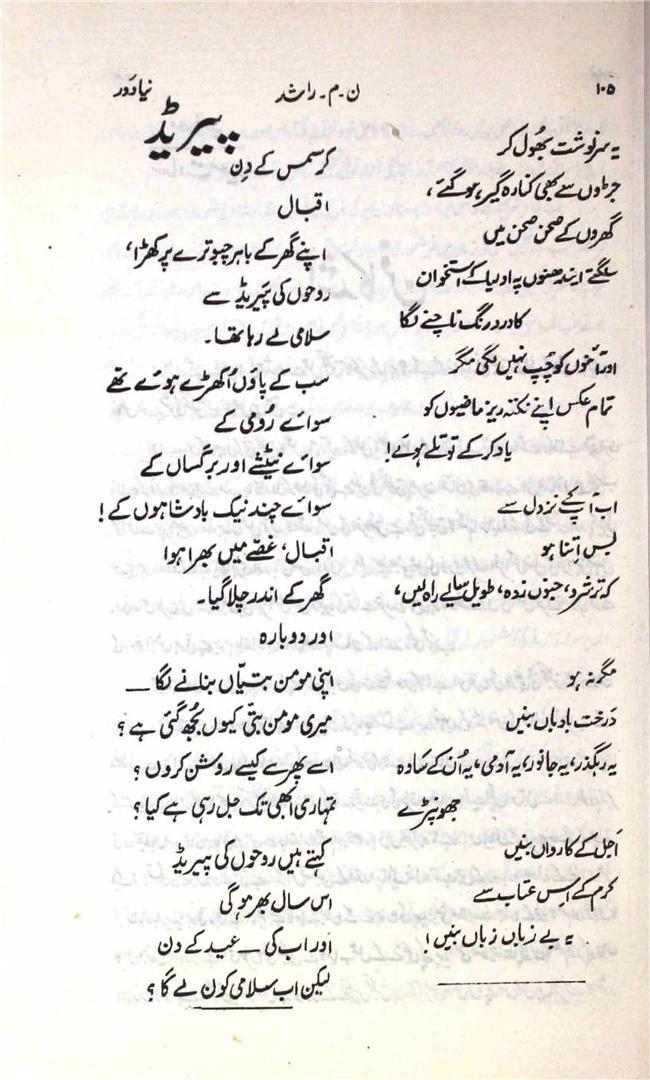 ۱۰۵
ن ۔ م ۔ راشد
نیا دَور
یہ سرنوشت بھُول کر
جڑوں سے بھی کنارہ گیر ہو گئے،
گھروں کے صحن صحن میں
سلگتے ایندھنوں پہ ادلیا کے استخوان
کا دردِ رنگ ناچنے لگا
اور آخوں کو چَپ نہیں لگی مگر
تمام عکس اپنے نکتہ ریز ماضیوں کو
یاد کر کے توتلے ہوئے!
اب آپکے نزدل سے
بس اتنا ہو
کہ ترشرد، جنوں زدہ، طویل سائے راہ لیں،
مگر نہ ہو
درخت بادباں بنیں
یہ رہگذر، یہ جانور، یہ آدمی، یہ اُن کے سادہ
جھونپڑے
اَجل کے کارواں بنیں
کرم کے اِس عتاب سے
یہ بے زباں زباں بنیں!
پیریڈ
کرسمس کے دِن
اقبال
اپنے گھر کے باہر چبوترے پر کھڑا،
روحوں کی پَیریڈ سے
سلامی لے رہا تھا۔
سب کے پاؤں اُکھڑے ہوئے تھے
سوائے رُومی کے
سوائے نیٹشے اور برگساں کے
سوائے چند نیک بادشاہوں کے!
اقبال، غصّے میں بھرا ہوا
گھر کے اندر چلا گیا۔
اور دوبارہ
اپنی مومن بتیّاں بنانے لگا ــــ
میری مومن بتّی کیوں بُجھ گئی ہے؟
اسے پھر سے کیسے روشن کروں؟
تمہاری ابھی تک جل رہی ہے کیا؟
کہتے ہیں روحوں کی پیریڈ
اس سال پھر ہو گی
اور اب کی ــ عید کے دن
لیکن اب سلامی کون لے گا؟